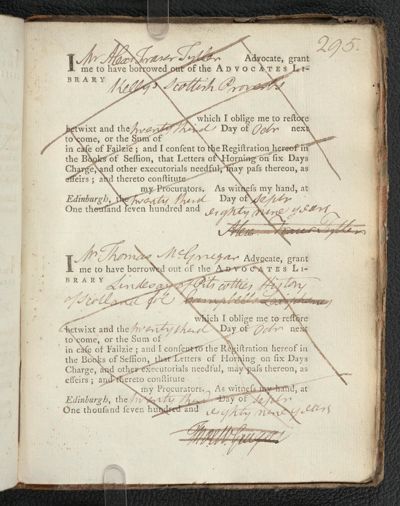 295.
I Mr Alexr Fraser Tytler Advocate, grant
me to have borrowed out of the ADVOCATES LI-
BRARY
Kelly's Scottish Proverbs
which I oblige me to reſtore
betwixt and the twenty third Day of Octr next
to come, or the Sum of
in caſe of Failzie; and I conſent to the Regiſtration hereof in
the Books of Seſſion, that Letters of Horning on ſix Days
Charge, and other executorials needful, may paſs thereon, as
effeirs; and thereto conſtitute
my Procurators. As witneſs my hand, at
Edinburgh, the twenty third Day of Septr
One thouſand ſeven hundred and eighty nine years
Alexr Fraser Tytler
I Mr Thomas McGrugar Advocate, grant
me to have borrowed out of the ADVOCATES LI-
BRARY Lindesay of Pitscotties History
of Scotland fol.
which I oblige me to reſtore
betwixt and the twenty third Day of Octr next
to come, or the Sum of
in caſe of Failzie; and I conſent to the Regiſtration hereof in
the Books of Seſſion, that Letters of Horning on ſix Days
Charge, and other executorials needful, may paſs thereon, as
effeirs; and thereto conſtitute
my Procurators. As witneſs my hand, at
Edinburgh, the twenty third Day of Septr
One thouſand ſeven hundred and eighty nine years
Thos McGrugar